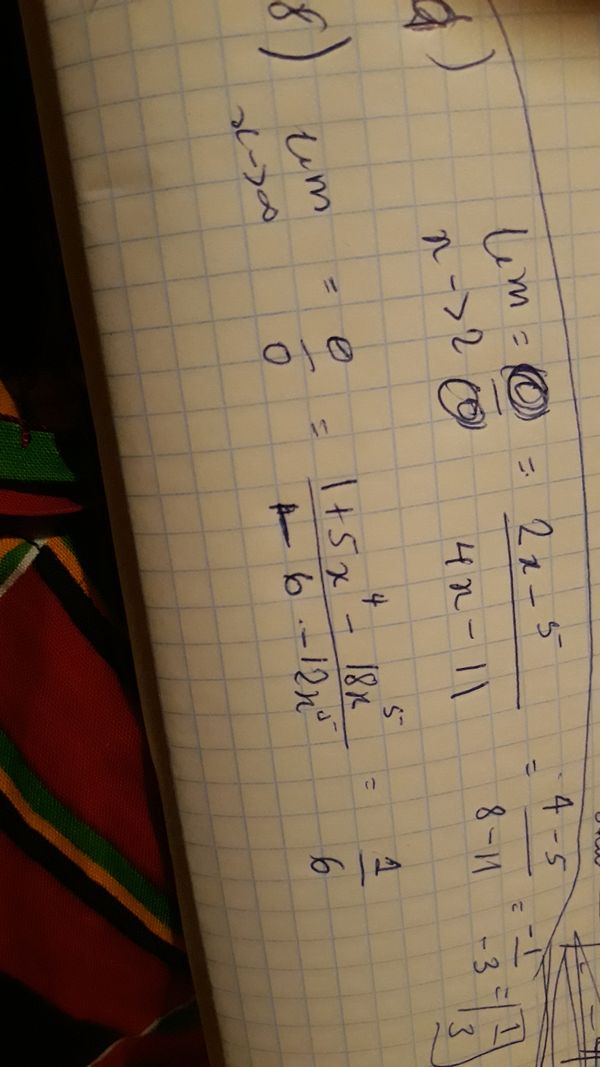 a)
lim = 0/0 = (2x - 5)/(4x - 11) = (4 - 5)/(8 - 11) = -1/-3 = 1/3
x -> 2
б)
lim = 0/0 = (1 + 5x^4 - 18x^5)/(6 - 12x^5) = 1/6
x -> ∞